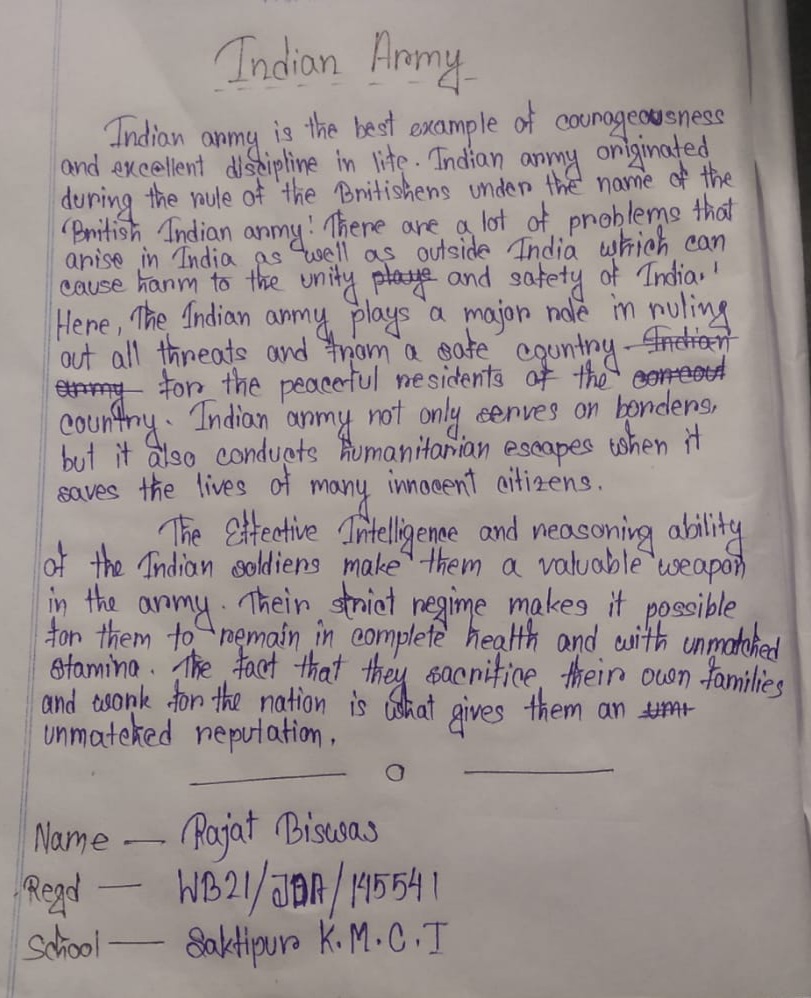 Indian Army
Indian army is the best example of courageousness
and excellent discipline in life. Indian army originated
during the rule of the Britishers under the name of the
'British Indian army'. There are a lot of problems that
arise in India as well as outside India which can
cause harm to the unity plays and safety of India.'
Here, The Indian army plays a major role in ruling
out all threats and from a safe country Indian
army for the peaceful residents of the
country. Indian army not only serves on borders,
but it also conducts humanitarian escapes when it
saves the lives of many innocent citizens.
The Effective Intelligence and reasoning ability
of the Indian soldiers make them a valuable weapon
in the army. Their strict regime makes it possible
for them to remain in complete health and with unmatched
stamina. The fact that they sacrifice their own families
and work for the nation is what gives them an
unmatched reputation.
Name — Rajat Biswas
Regd — WB21/JDA/145541
School — Saktipur K.M.C.I